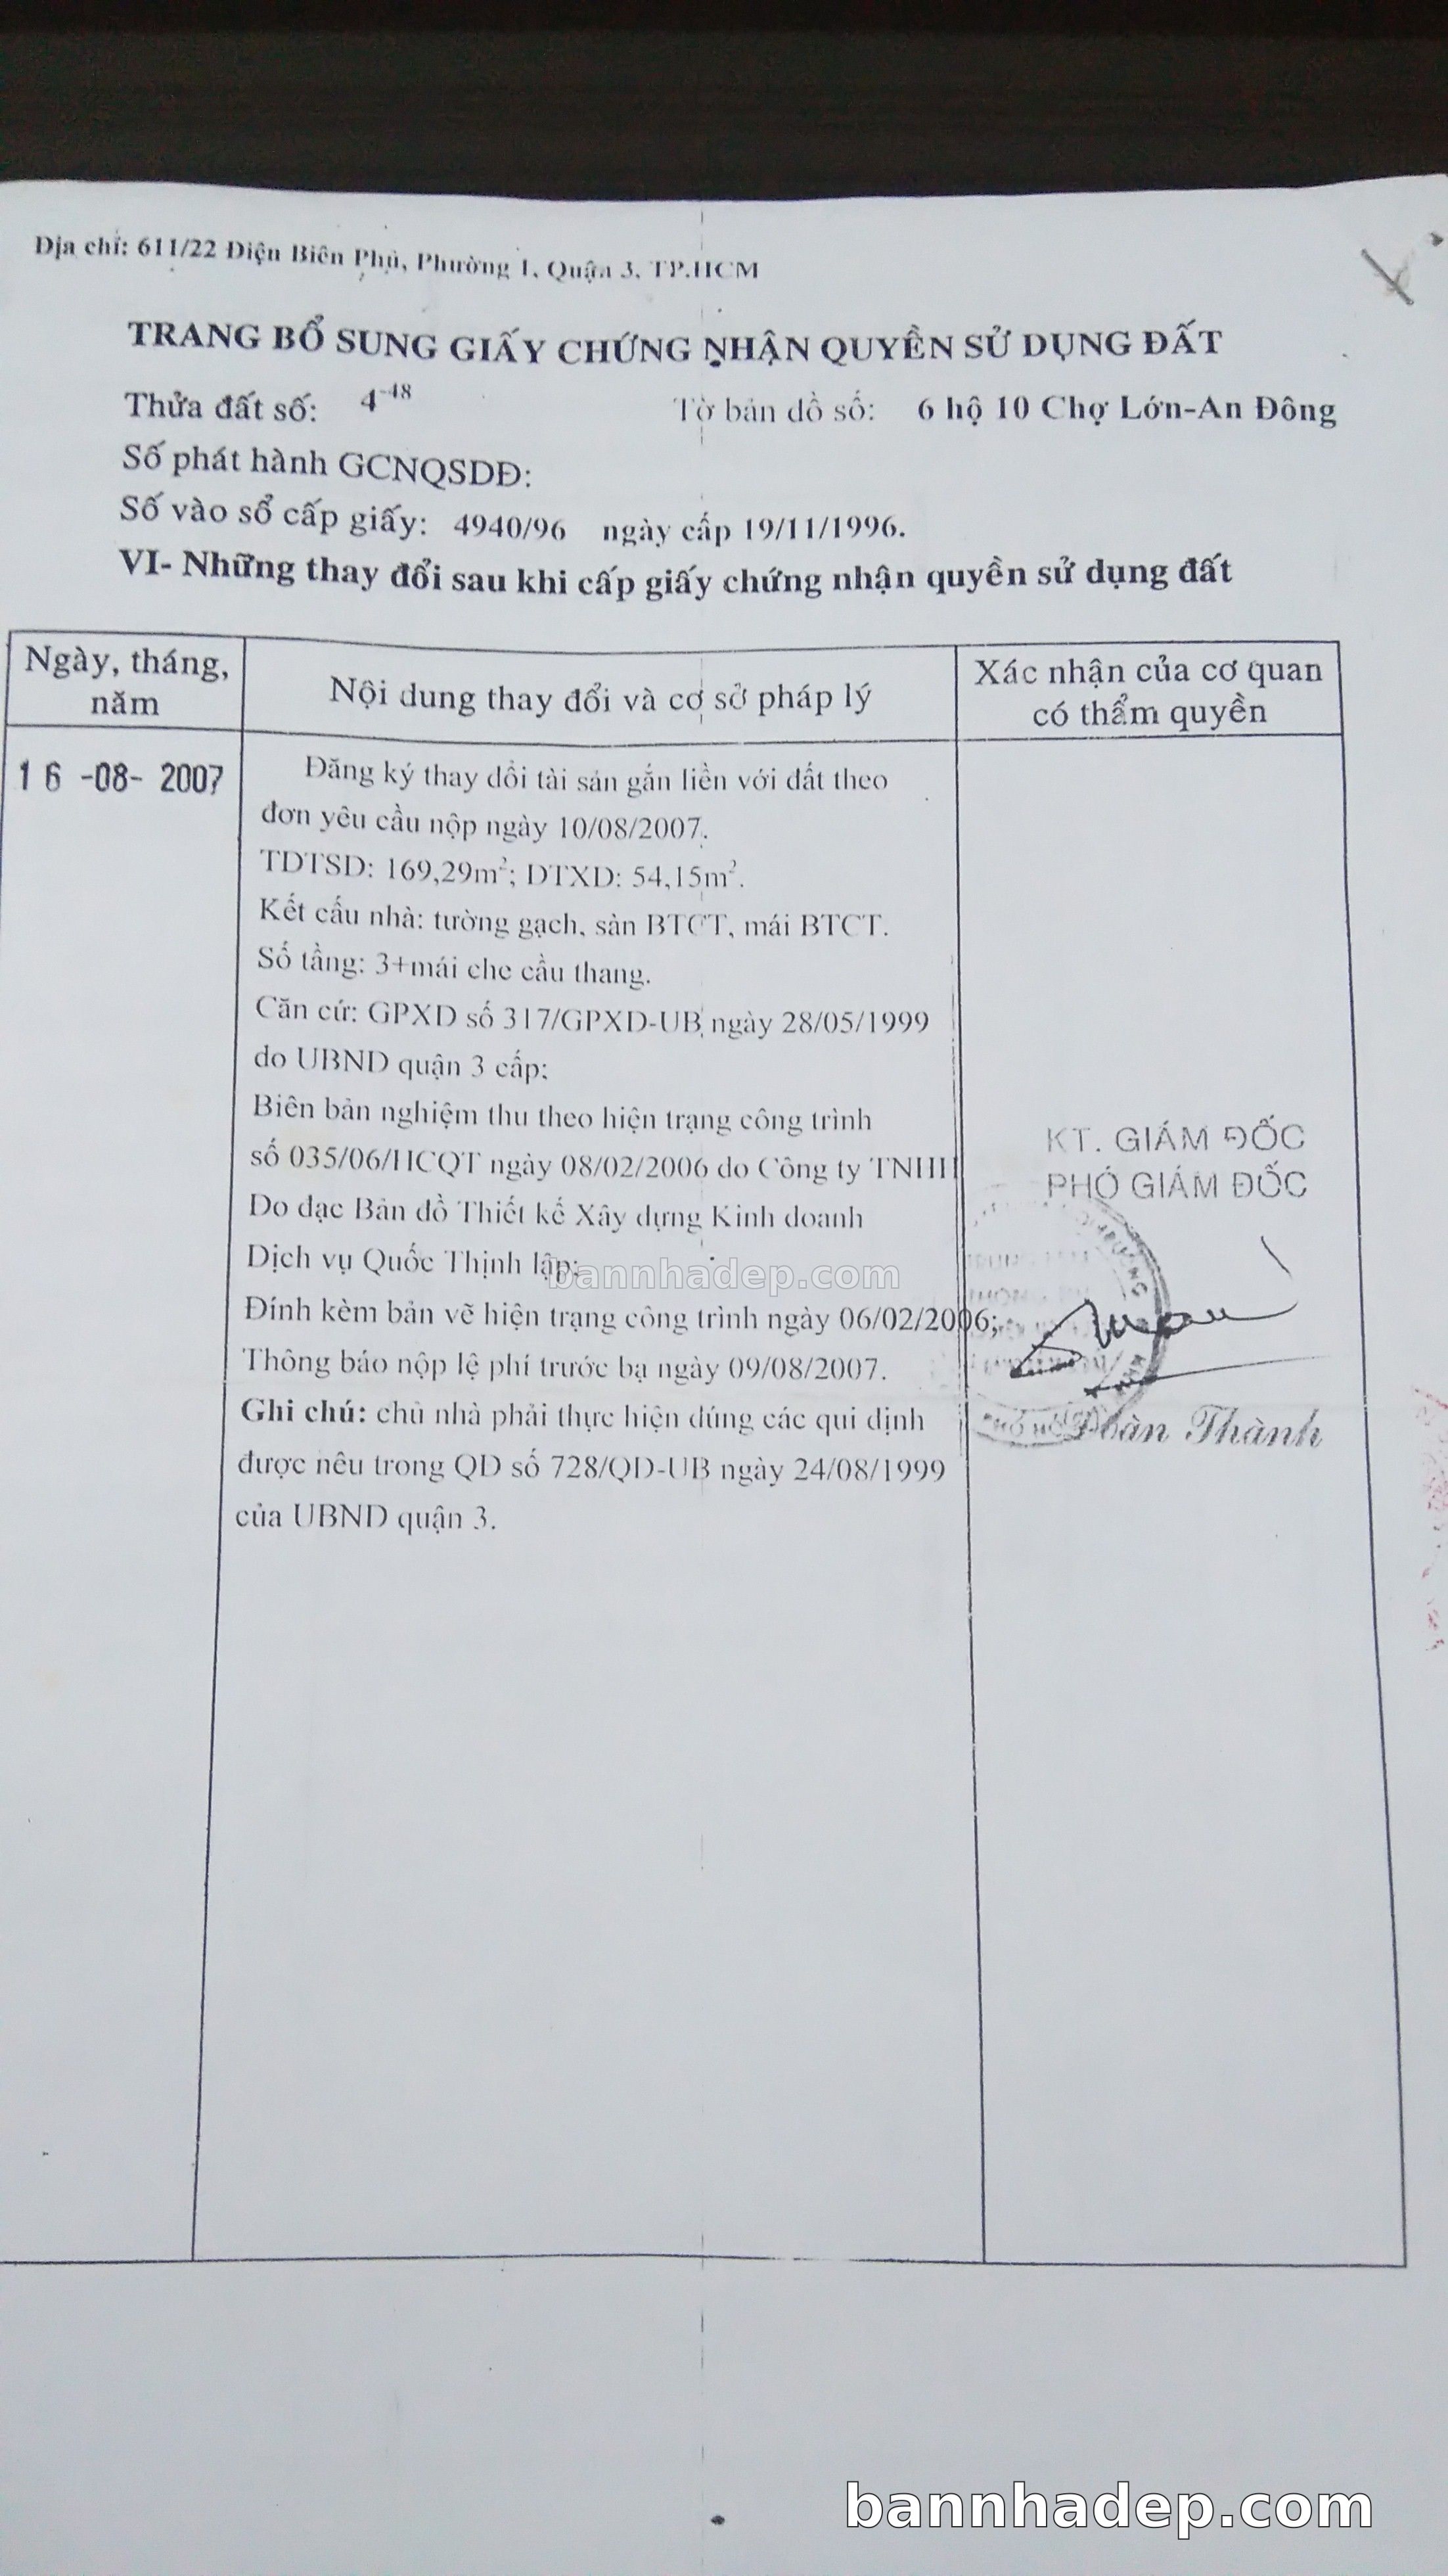 Địa chỉ: 611/22 Điện Biên Phủ, Phường 1, Quận 3, TP.HCM
TRANG BỔ SUNG GIẤY CHỨNG NHẬN QUYỀN SỬ DỤNG ĐẤT
Thửa đất số: 4-48 Tờ bản đồ số: 6 hộ 10 Chợ Lớn-An Đông
Số phát hành GCNQSDĐ:
Số vào sổ cấp giấy: 4940/96 ngày cấp 19/11/1996.
VI- Những thay đổi sau khi cấp giấy chứng nhận quyền sử dụng đất
Ngày, tháng, năm
Nội dung thay đổi và cơ sở pháp lý
Xác nhận của cơ quan có thẩm quyền
16 -08- 2007
Đăng ký thay đổi tài sản gắn liền với đất theo
đơn yêu cầu nộp ngày 10/08/2007.
TDTSD: 169,29m²; DTXD: 54,15m².
Kết cấu nhà: tường gạch, sàn BTCT, mái BTCT.
Số tầng: 3+mái che cầu thang.
Căn cứ: GPXD số 317/GPXD-UB ngày 28/05/1999
do UBND quận 3 cấp;
Biên bản nghiệm thu theo hiện trạng công trình
số 035/06/HCQT ngày 08/02/2006 do Công ty TNHH
Đo đạc Bản đồ Thiết kế Xây dựng Kinh doanh
Dịch vụ Quốc Thịnh lập;
Đính kèm bản vẽ hiện trạng công trình ngày 06/02/2006;
Thông báo nộp lệ phí trước bạ ngày 09/08/2007.
Ghi chú: chủ nhà phải thực hiện đúng các qui định
được nêu trong QD số 728/QD-UB ngày 24/08/1999
của UBND quận 3.
KT. GIÁM ĐỐC
PHÓ GIÁM ĐỐC
Thành
bannhadep.com
bannhadep.com